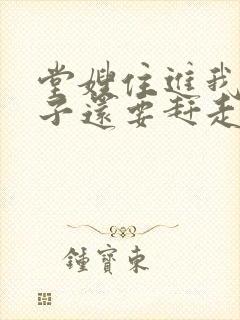 堂嫂住進我
子還要赶走
鍾寶東